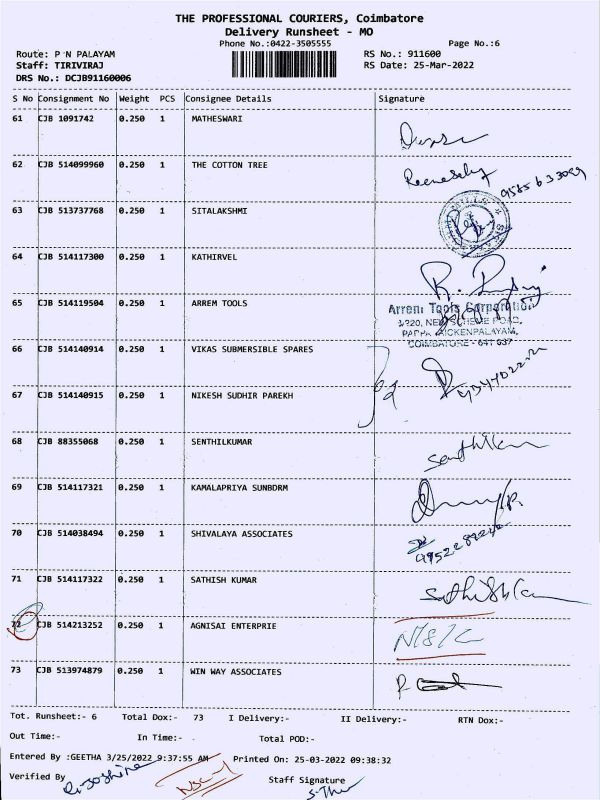 THE PROFESSIONAL COURIERS, Coimbatore
Delivery Runsheet - MO
Phone No.:0422-3505555 Page No.:6
Route: P N PALAYAM RS No.: 911600
Staff: TIRIVIRAJ RS Date: 25-Mar-2022
DRS No.: DCJB91160006
S No Consignment No Weight PCS Consignee Details Signature
61 CJB 1091742 0.250 1 MATHESWARI
62 CJB 514099960 0.250 1 THE COTTON TREE
63 CJB 513737768 0.250 1 SITALAKSHMI
64 CJB 514117300 0.250 1 KATHIRVEL
65 CJB 514119504 0.250 1 ARREM TOOLS
Arrem Tools Corporation
COIMBATORE - 641 037
66 CJB 514140914 0.250 1 VIKAS SUBMERSIBLE SPARES
67 CJB 514140915 0.250 1 NIKESH SUDHIR PAREKH
68 CJB 88355068 0.250 1 SENTHILKUMAR
69 CJB 514117321 0.250 1 KAMALAPRIYA SUNBDRM
70 CJB 514038494 0.250 1 SHIVALAYA ASSOCIATES
71 CJB 514117322 0.250 1 SATHISH KUMAR
72 CJB 514213252 0.250 1 AGNISAI ENTERPRIE
73 CJB 513974879 0.250 1 WIN WAY ASSOCIATES
Tot. Runsheet:- 6 Total Dox:- 73 I Delivery:- II Delivery:- RTN Dox:-
Out Time:- In Time:- Total POD:-
Entered By :GEETHA 3/25/2022 9:37:55 AM Printed On: 25-03-2022 09:38:32
Verified By Staff Signature